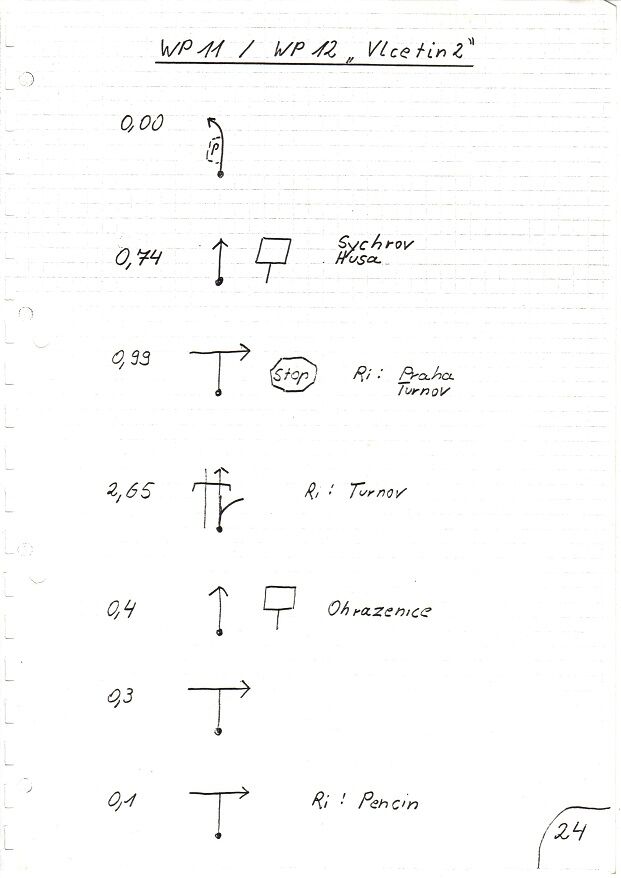 WP 11 / WP 12 „Vlcetin 2"
0,00
P
0,74
Sychrov
Husa
0,99
Stop
Ri: Praha
Turnov
2,65
Ri: Turnov
0,4
Ohrazenice
0,3
0,1
Ri: Pencin
24